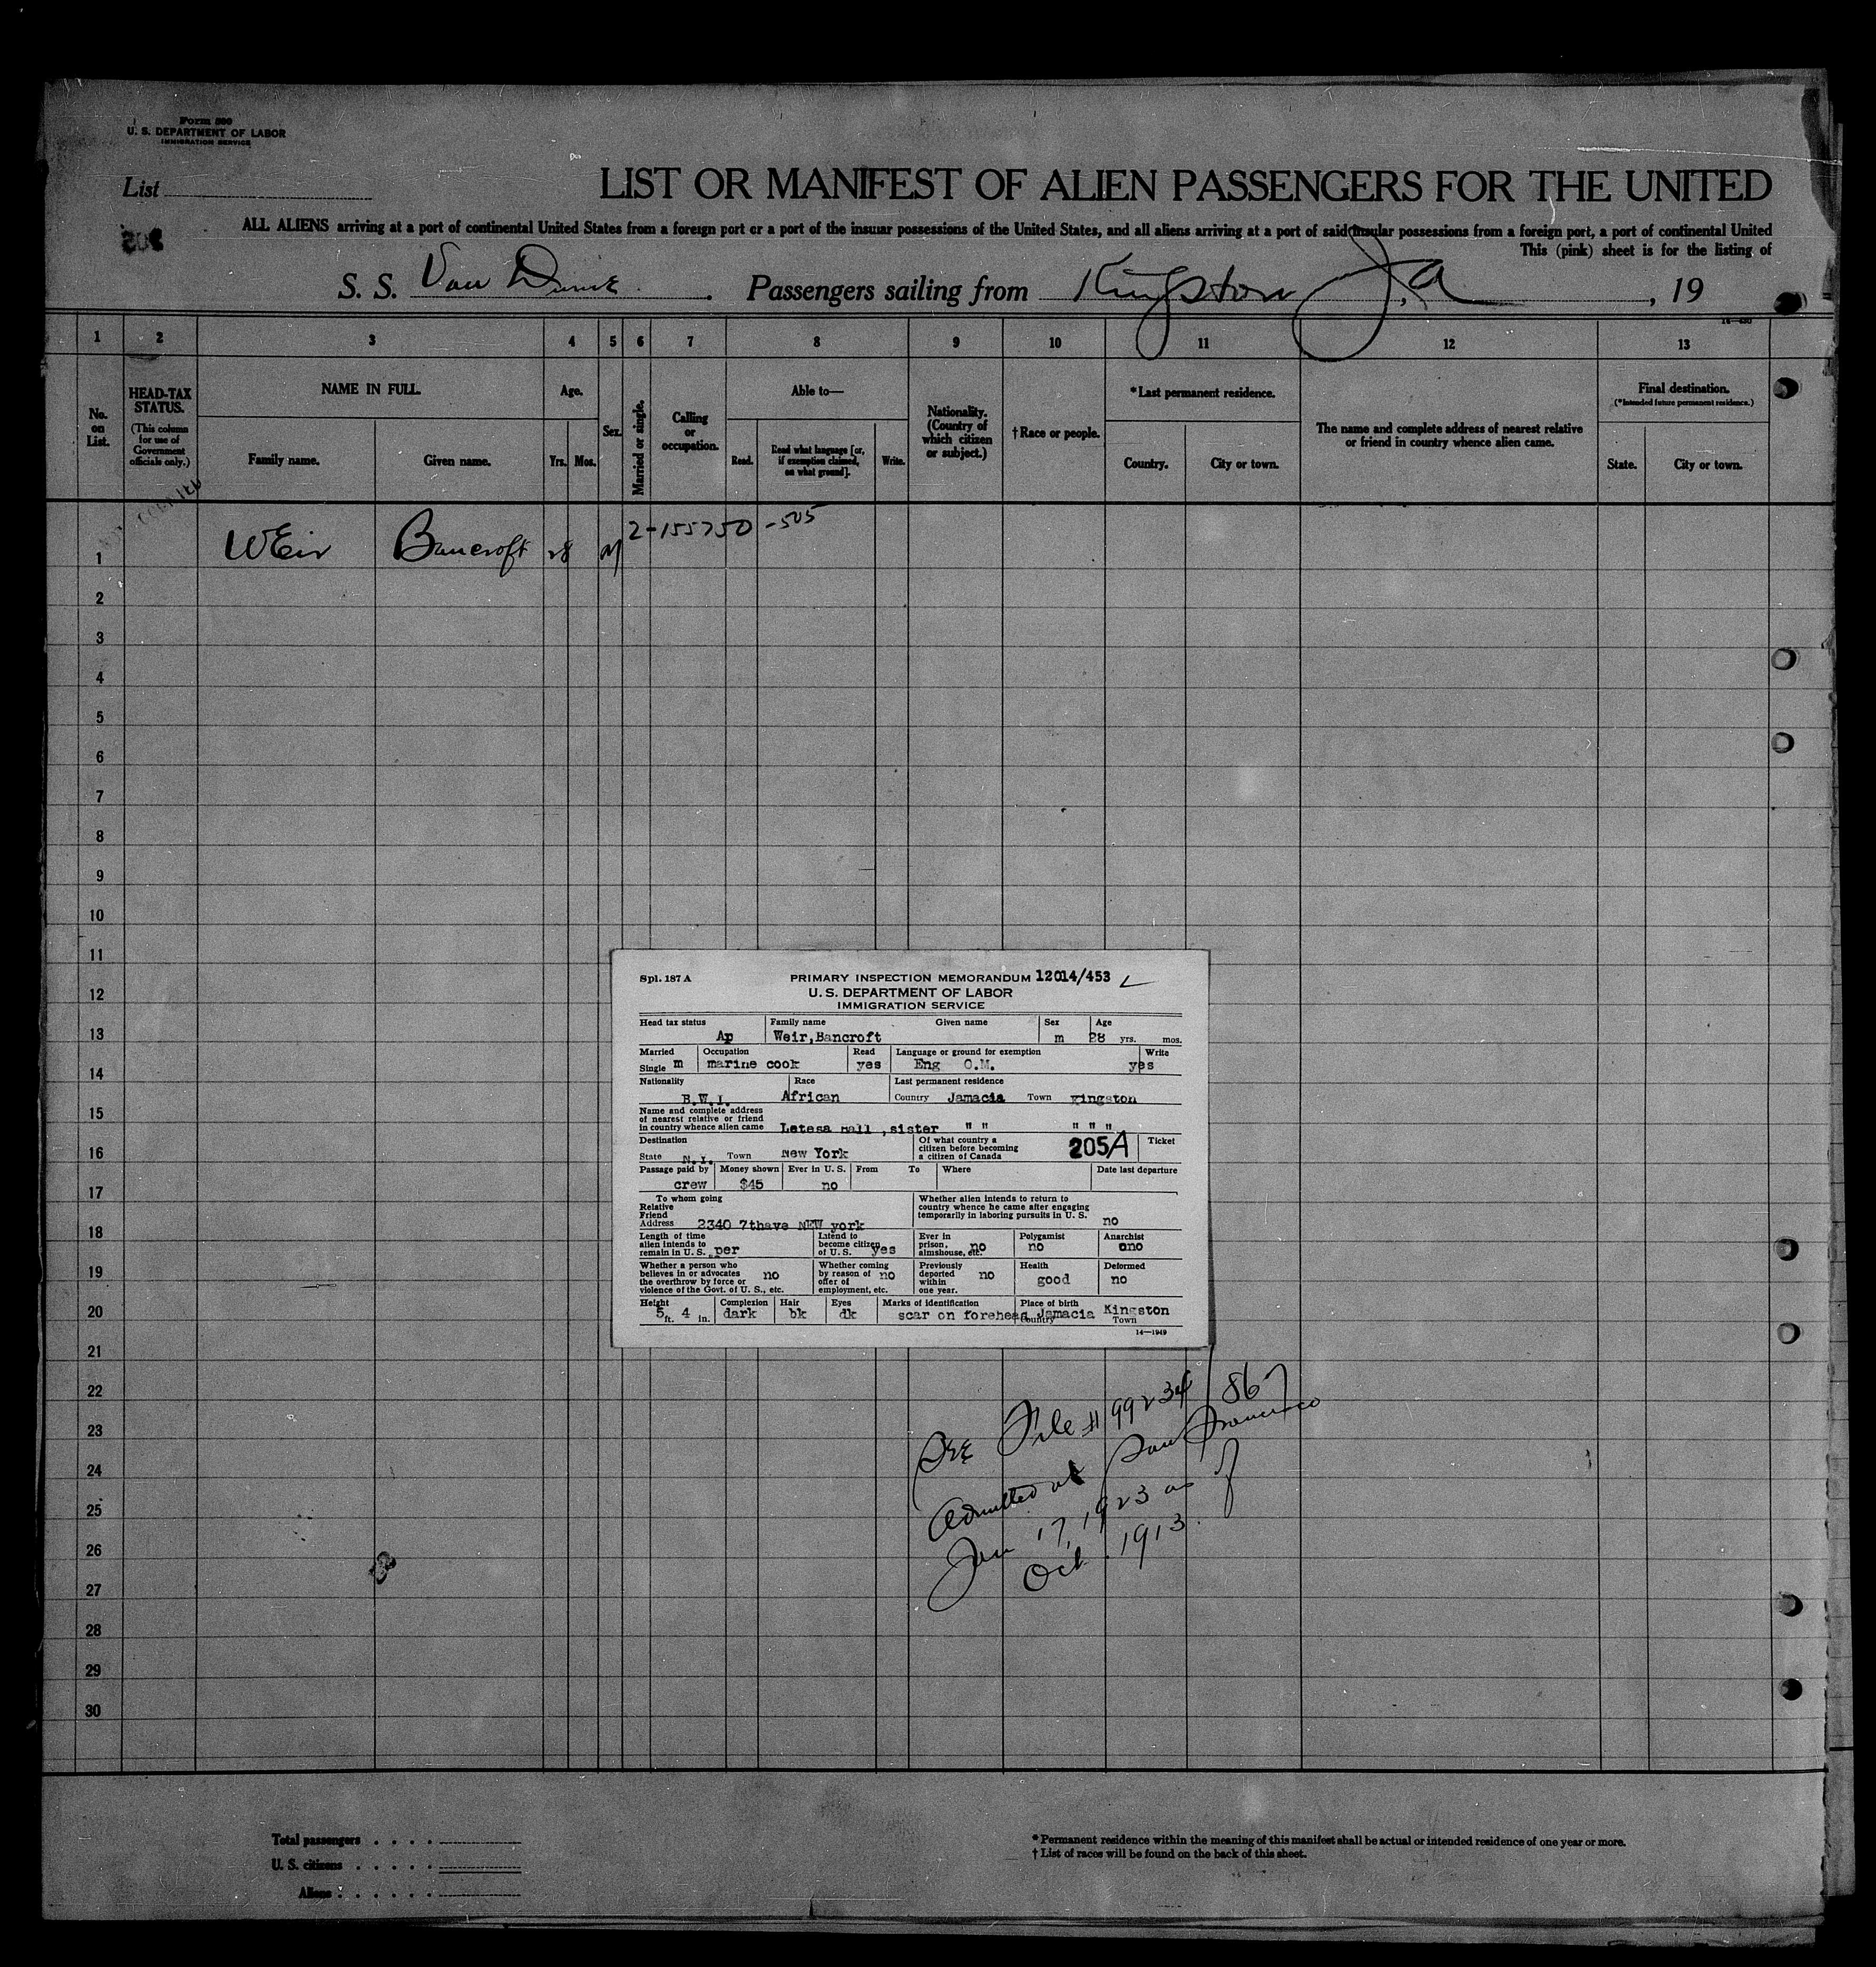 Form 500
U. S. DEPARTMENT OF LABOR
IMMIGRATION SERVICE
List
LIST OR MANIFEST OF ALIEN PASSENGERS FOR THE UNITED
ALL ALIENS arriving at a port of continental United States from a foreign port or a port of the insular possessions of the United States, and all aliens arriving at a port of said insular possessions from a foreign port, a port of continental United
This (pink) sheet is for the listing of
S. S. Van Passengers sailing from Kingston Ja , 19
1 2 3 4 5 6 7 8 9 10 11 12 13
No. on List.
HEAD-TAX STATUS.
(This column for use of Government officials only.)
NAME IN FULL.
Family name. Given name.
Age.
Yrs. Mos.
Sex.
Married or single.
Calling or occupation.
Able to—
Read. Read what language [or, if exemption claimed, on what ground]. Write.
Nationality. (Country of which citizen or subject.)
† Race or people.
* Last permanent residence.
Country. City or town.
The name and complete address of nearest relative or friend in country whence alien came.
Final destination.
(*Intended future permanent residence.)
State. City or town.
1 Weir Bancroft 28 M 2-155750-505
2
3
4
5
6
7
8
9
10
11
12
13
14
15
16
17
18
19
20
21
22
23
24
25
26
27
28
29
30
Spl. 187 A PRIMARY INSPECTION MEMORANDUM 12014/453
U. S. DEPARTMENT OF LABOR
IMMIGRATION SERVICE
Head tax status Family name Given name Sex Age
Ap Weir,Bancroft m 28 yrs. mos.
Married Occupation Read Language or ground for exemption Write
Single m marine cook yes Eng O.M. yes
Nationality Race Last permanent residence
B.W.I. African Country Jamacia Town Kingston
Name and complete address
of nearest relative or friend
in country whence alien came Letesa Hall ,sister " " " " "
Destination Of what country a citizen before becoming a citizen of Canada 205A Ticket
State N.I. Town New York
Passage paid by Money shown Ever in U. S. From To Where Date last departure
crew $45 no
To whom going Whether alien intends to return to
Relative country whence he came after engaging
Friend temporarily in laboring pursuits in U. S. no
Address 2340 7thave NEW york
Length of time alien intends to remain in U. S. per
Intend to become citizen of U. S. yes
Ever in prison, almshouse, etc. no
Polygamist no
Anarchist ono
Whether a person who believes in or advocates the overthrow by force or violence of the Govt. of U. S., etc. no
Whether coming by reason of offer of employment, etc. no
Previously deported within one year. no
Health good
Deformed no
Height Complexion Hair Eyes Marks of identification Place of birth
5 ft. 4 in. dark bk dk scar on forehead Country Jamacia Kingston Town
14—1949
See File # 99234/867
Admitted at San Francisco
Jan 17, 1923 as of
Oct. 1913.
Total passengers
U. S. citizens
Aliens
* Permanent residence within the meaning of this manifest shall be actual or intended residence of one year or more.
† List of races will be found on the back of this sheet.